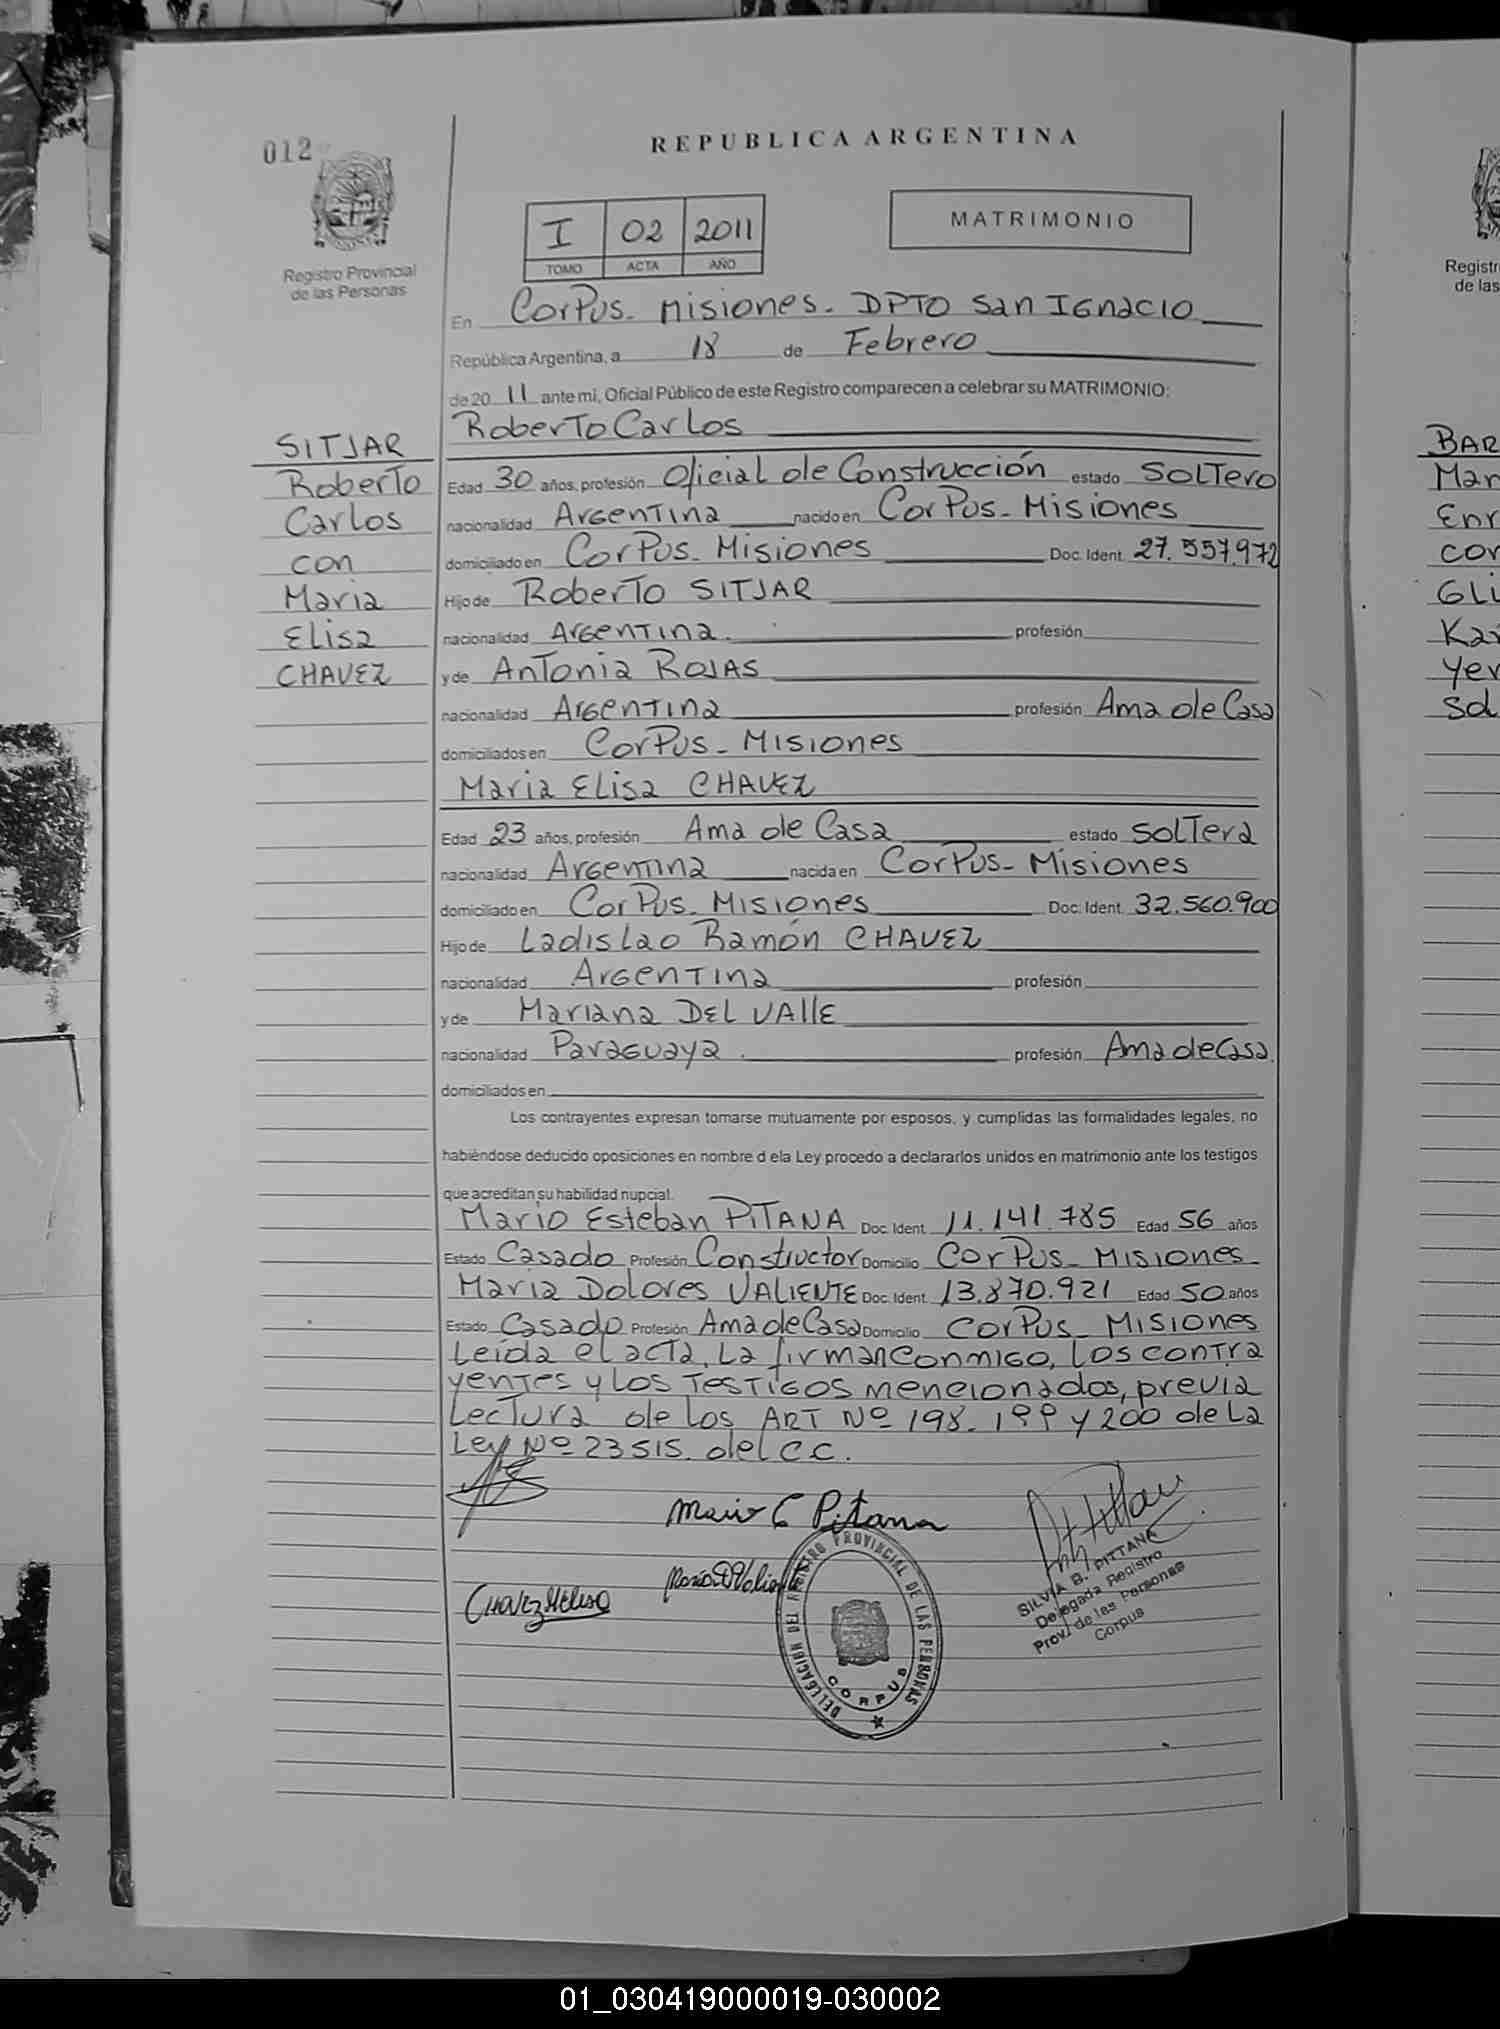 012
REPUBLICA ARGENTINA
Registro Provincial
de las Personas
I 02 2011
TOMO ACTA AÑO
MATRIMONIO
En Corpus - Misiones - DPTO San Ignacio
República Argentina, a 18 de Febrero
de 20 11 ante mi, Oficial Público de este Registro comparecen a celebrar su MATRIMONIO:
SITJAR
Roberto
Carlos
con
Maria
Elisa
CHAVEZ
Roberto Carlos
Edad 30 años, profesión Oficial de Construcción estado Soltero
nacionalidad Argentina nacido en Corpus - Misiones
domiciliado en Corpus - Misiones Doc. Ident. 27.557.972
Hijo de Roberto SITJAR
nacionalidad Argentina. profesión
y de Antonia ROJAS
nacionalidad Argentina profesión Ama de Casa
domiciliados en Corpus - Misiones
Maria Elisa CHAVEZ
Edad 23 años, profesión Ama de Casa estado Soltera
nacionalidad Argentina nacida en Corpus - Misiones
domiciliado en Corpus - Misiones Doc. Ident. 32.560.900
Hijo de Ladislao Ramón CHAVEZ
nacionalidad Argentina profesión
y de Mariana DEL VALLE
nacionalidad Paraguaya. profesión Ama de Casa.
domiciliados en
Los contrayentes expresan tomarse mutuamente por esposos, y cumplidas las formalidades legales, no
habiéndose deducido oposiciones en nombre d ela Ley procedo a declararlos unidos en matrimonio ante los testigos
que acreditan su habilidad nupcial.
Mario Esteban PITANA Doc. Ident. 11.141.785 Edad 56 años
Estado Casado Profesión Constructor Domicilio Corpus - Misiones -
Maria Dolores VALIENTE Doc. Ident. 13.870.921 Edad 50 años
Estado Casado Profesión Ama de Casa Domicilio Corpus - Misiones
Leida el acta, la firman conmigo, los contra
yentes y los testigos mencionados, previa
Lectura de los ART Nº 198 - 199 y 200 de la
Ley Nº 23515. del C.C.
Mario E Pitana
Chavez M Elisa
DELEGACION DEL REGISTRO PROVINCIAL DE LAS PERSONAS
CORPUS
SILVIA B. PITTANA
Delegada Registro
Prov. de las Personas
Corpus
Registr
de las
BAR
Mar
Enr
con
Gli
Kar
yer
Sol
01_030419000019-030002